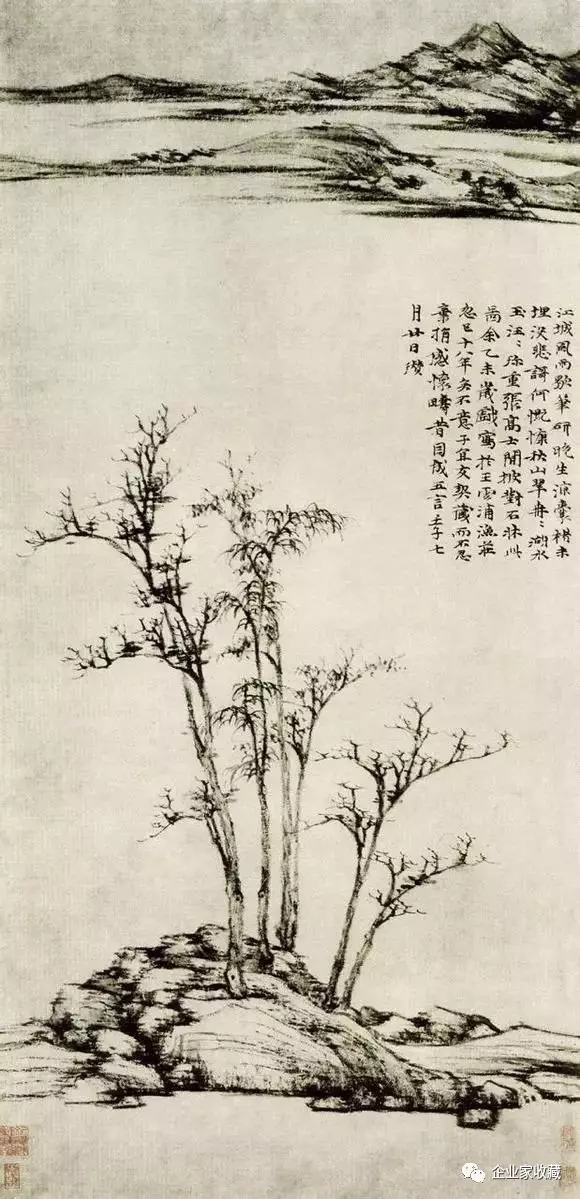 江城風雨歇筆研晚生涼囊楮未
埋沒悲謌何慨慷秋山翠冉〻湖水
玉汪〻珍重張高士閒披對石牀此
啚余乙未歲戲寫於王雲浦漁莊
忽已十八年矣不意子宜友契藏而不忍
棄捐感懷疇昔因成五言壬子七
月廿日瓚
企业家收藏